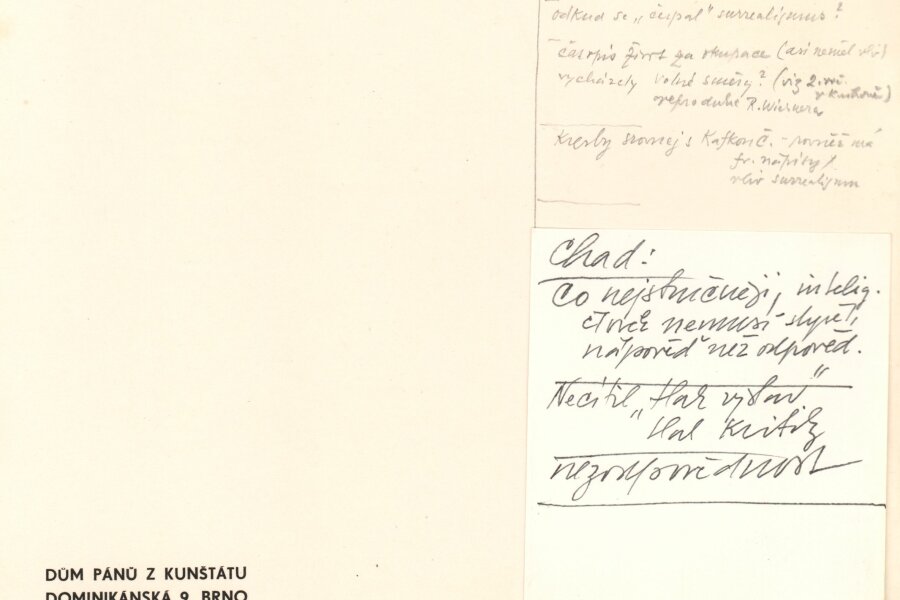 odkud se „čerpal" surrealismus?
časopis Život za okupace (asi neměl vliv)
vycházely Volné směry? (viz 2. roč.
v knihovně)
reprodukce R. Wiesnera
Kresby srovnej s Kafkou č. - rovněž má
fr. nápisy /
vliv surrealismu
Chad:
Co nejstručněji, intelig.
člověk nemusí slyšet,
nápověď než odpověď.
Necítil „tlak výstav"
tlak kritiky
nezodpovědnost
DŮM PÁNŮ Z KUNŠTÁTU
DOMINIKÁNSKÁ 9, BRNO